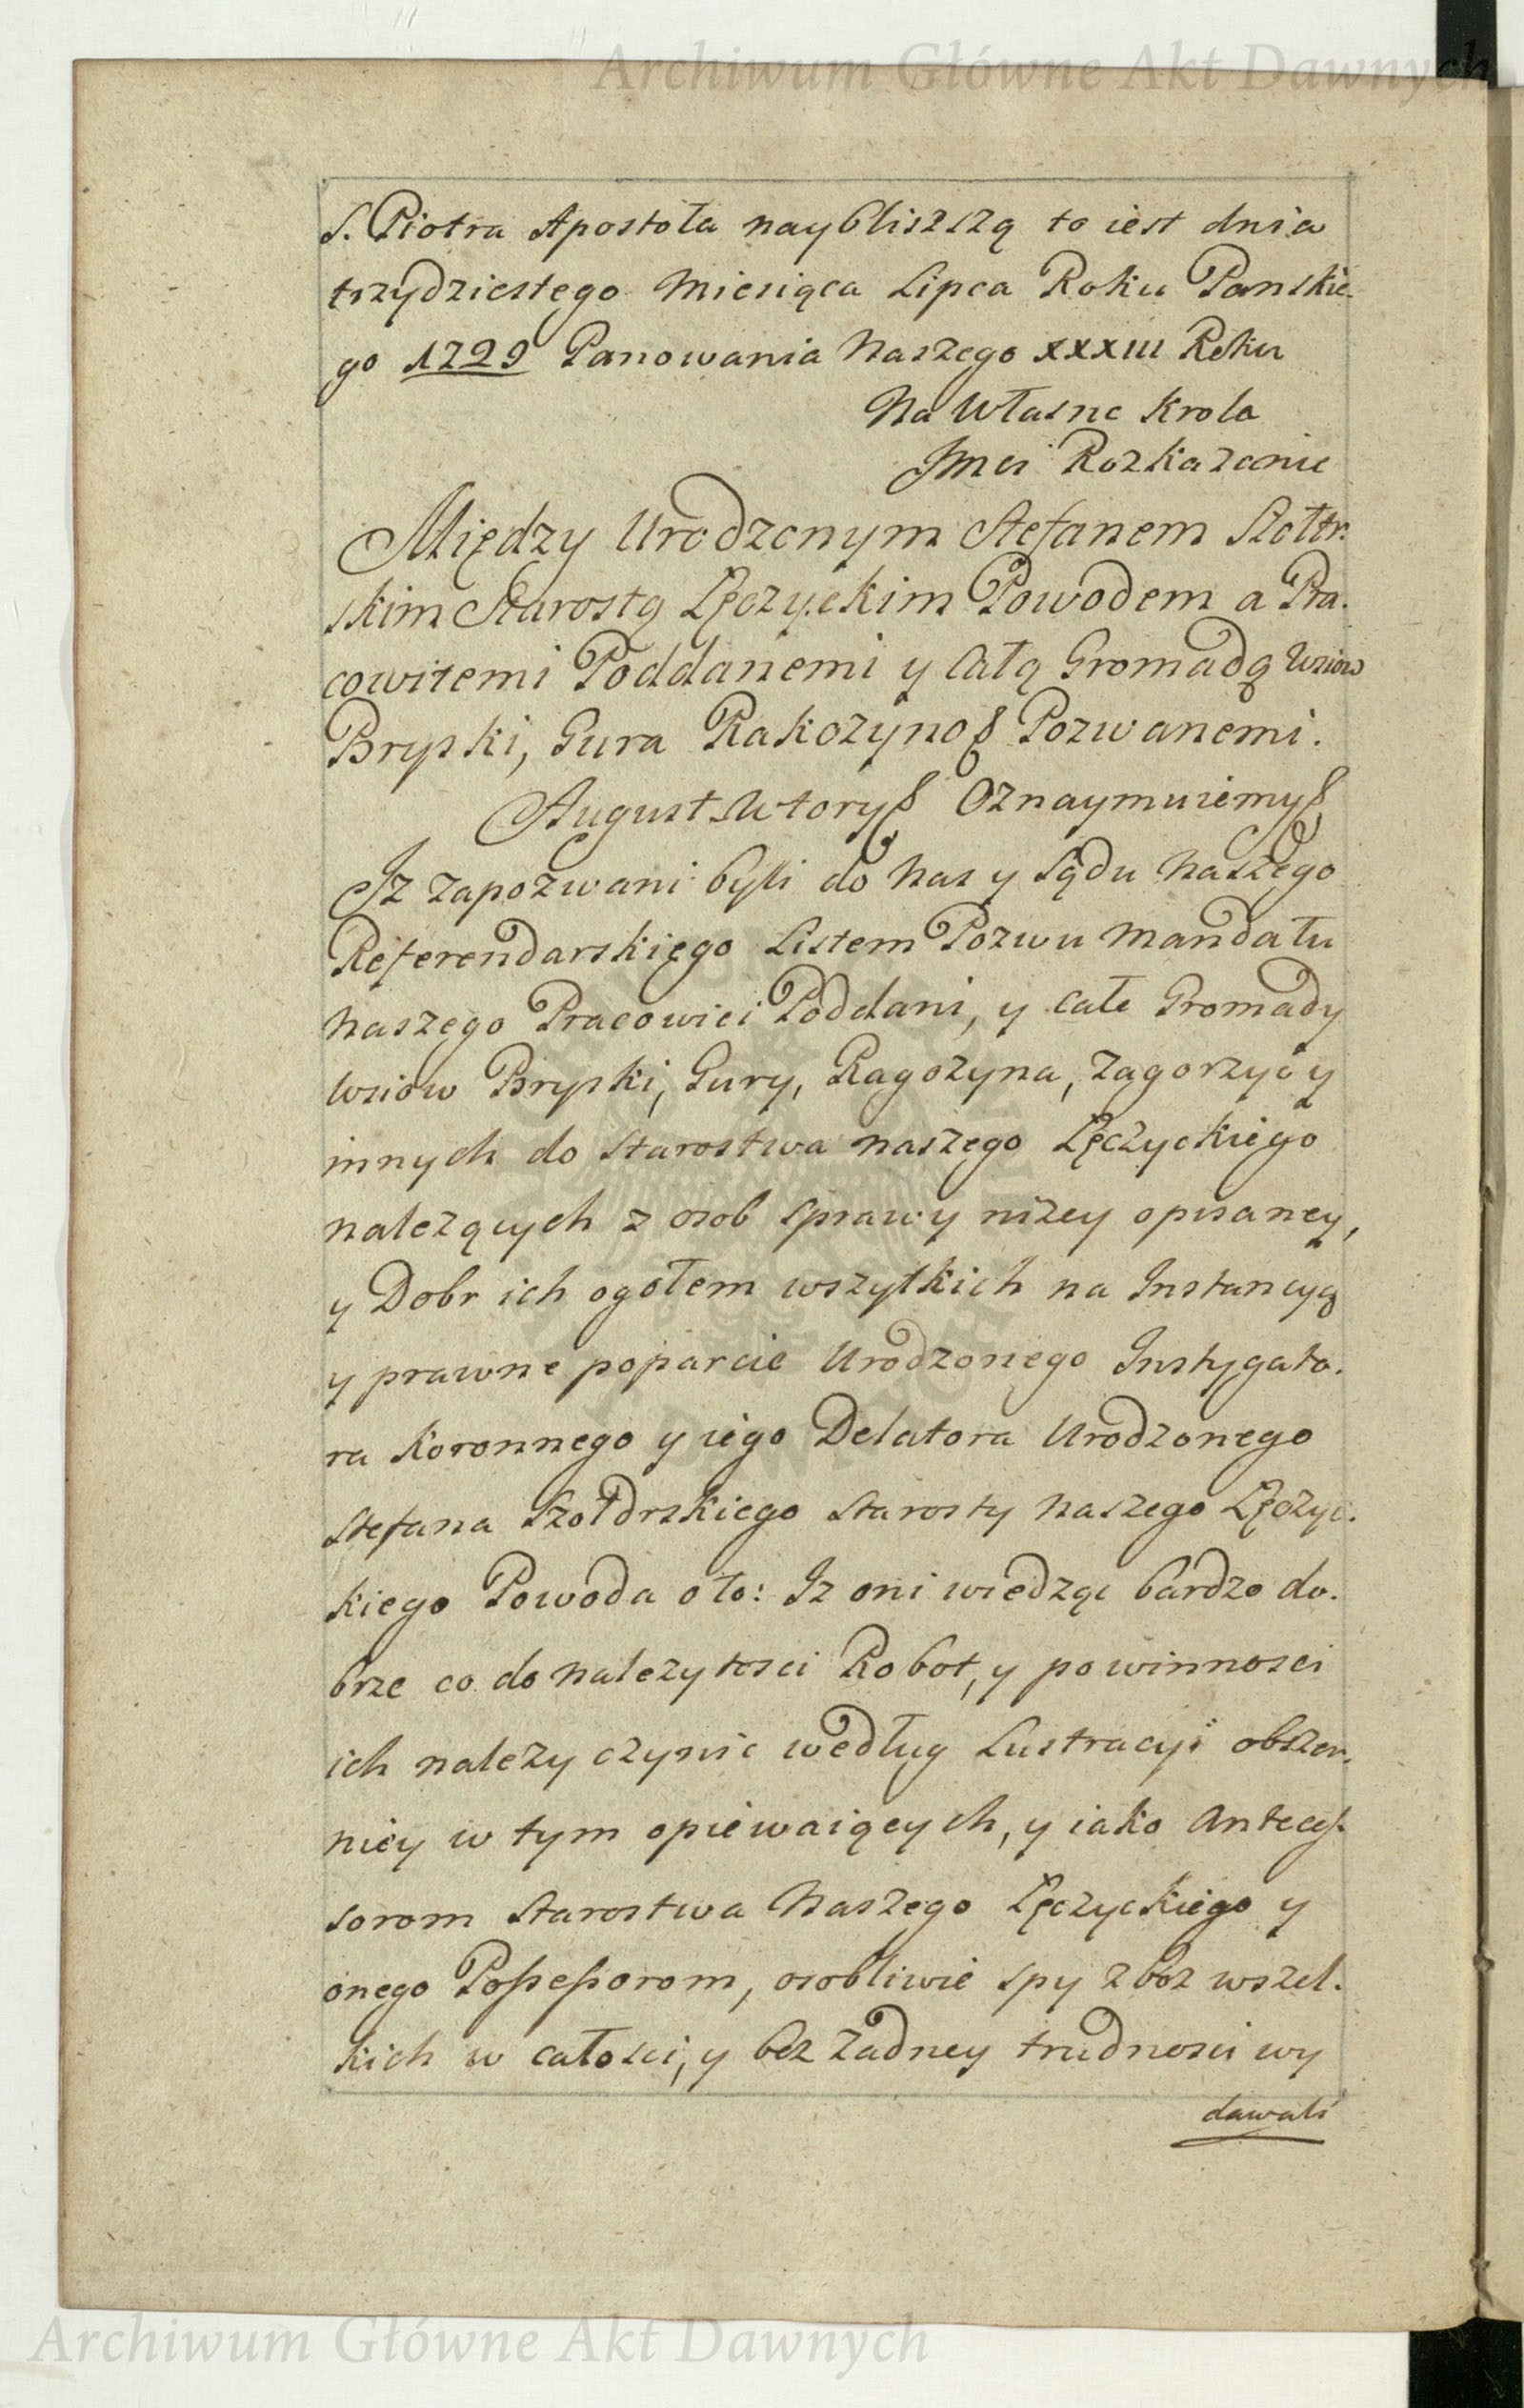 Archiwum Główne Akt Dawnych
S. Piotra Apostoła naybliszszą to iest dnia
trzydziestego Miesiąca Lipca Roku Panskie-
go 1729 Panowania Naszego XXXIII Roku
Na Własne Krola
Jmci Rozkazanie
Między Urodzonym Stefanem Szołtr:
skim Starostą Łęczyckim Powodem a Pra.
cowitemi Poddanemi y całą Gromadą Wsiow
Bryski, Gura Rakozyno Pozwanemi.
August Wtory Oznaymuiemy
Jz zapozwani byli do Nas y Sądu Naszego
Referendarskiego Listem Pozwu Mandatu
Naszego Pracowici Poddani, y całe Gromady
Wsiow Bryski, Gury, Ragozyna, Zagorzyc y
innych do Starostwa naszego Łęczyckiego
należących z osob sprawy niżey opisaney,
y Dobr ich ogołem wszytkich na Instancyą
y prawne poparcie Urodzonego Instygato.
ra Koronnego y iego Delatora Urodzonego
Stefana Szołdrskiego Starosty Naszego Łęczyc.
kiego Powoda o to: Iz oni wiedząc bardzo do.
brze co do należytosci Robot, y powinnosci
ich należy czynic według Lustracyi obszer.
niey w tym opiewaiących, y iako Antecess.
sorom Starostwa Naszego Łęczyckiego y
onego Possessorom, osobliwie spy zboz wszel.
kich w całosci, y bez żadney trudnosci wy
dawali
Archiwum Główne Akt Dawnych